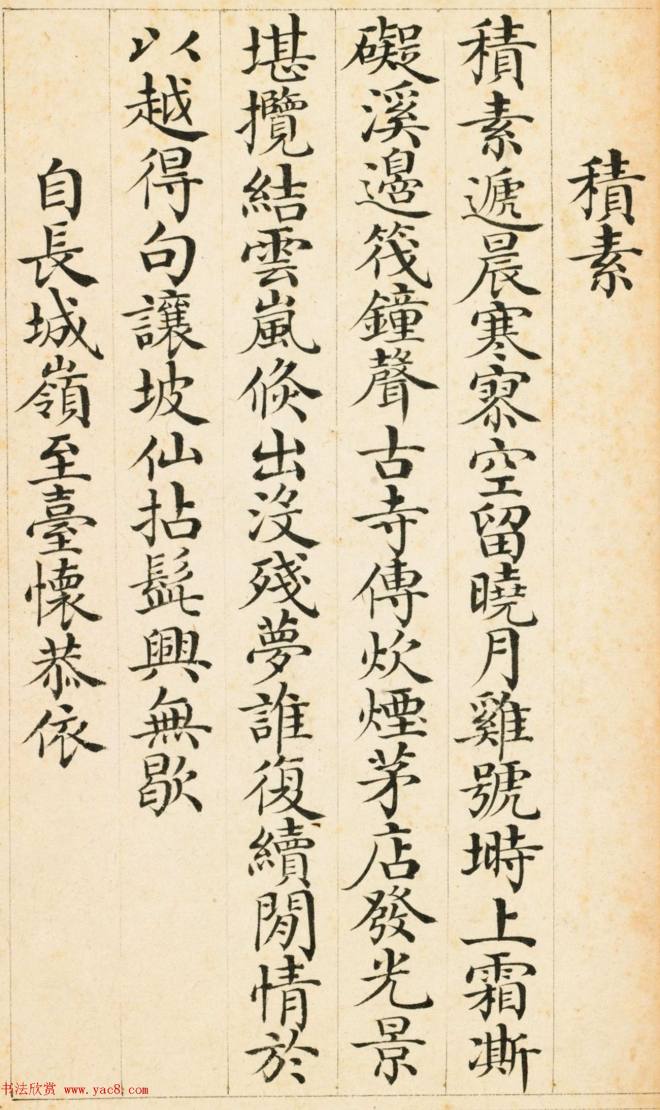 積素
積素遞晨寒寥空留曉月雞號塒上霜澌
礙溪邊筏鐘聲古寺傳炊煙茅店發光景
堪攬結雲嵐倐出没殘夢誰復續閒情於
以越得句讓坡仙拈髭興無歇
自長城嶺至臺懷恭依
书法欣赏 www.yac8.com